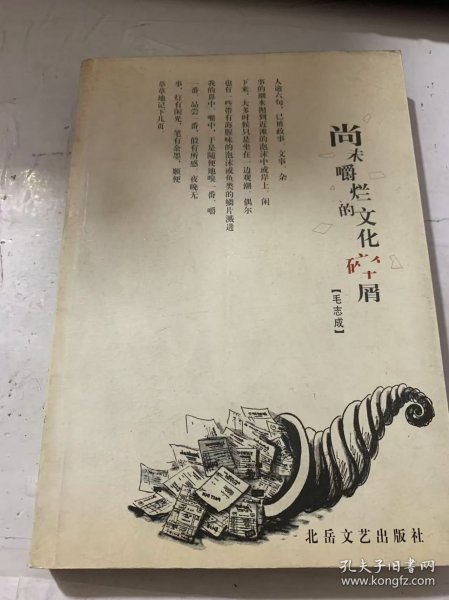 尚未嚼烂的文化碎屑
【毛志成】
人逾六旬，已将故事、文事、杂
事的潮水抛到近滩的泡沫中或岸上，闲
下来，大多时候只是坐在一边观潮，偶尔
也有一些带有海腥味的泡沫或鱼类的鳞片溅进
我的鼻中、嘴中，于是随便地嗅一番、嚼
一番、品尝一番，假有所感，夜晚无
事，灯有闲光，笔有余墨，顺便
草草地记下几页
北岳文艺出版社
孔夫子旧书网
www.kongfz.com